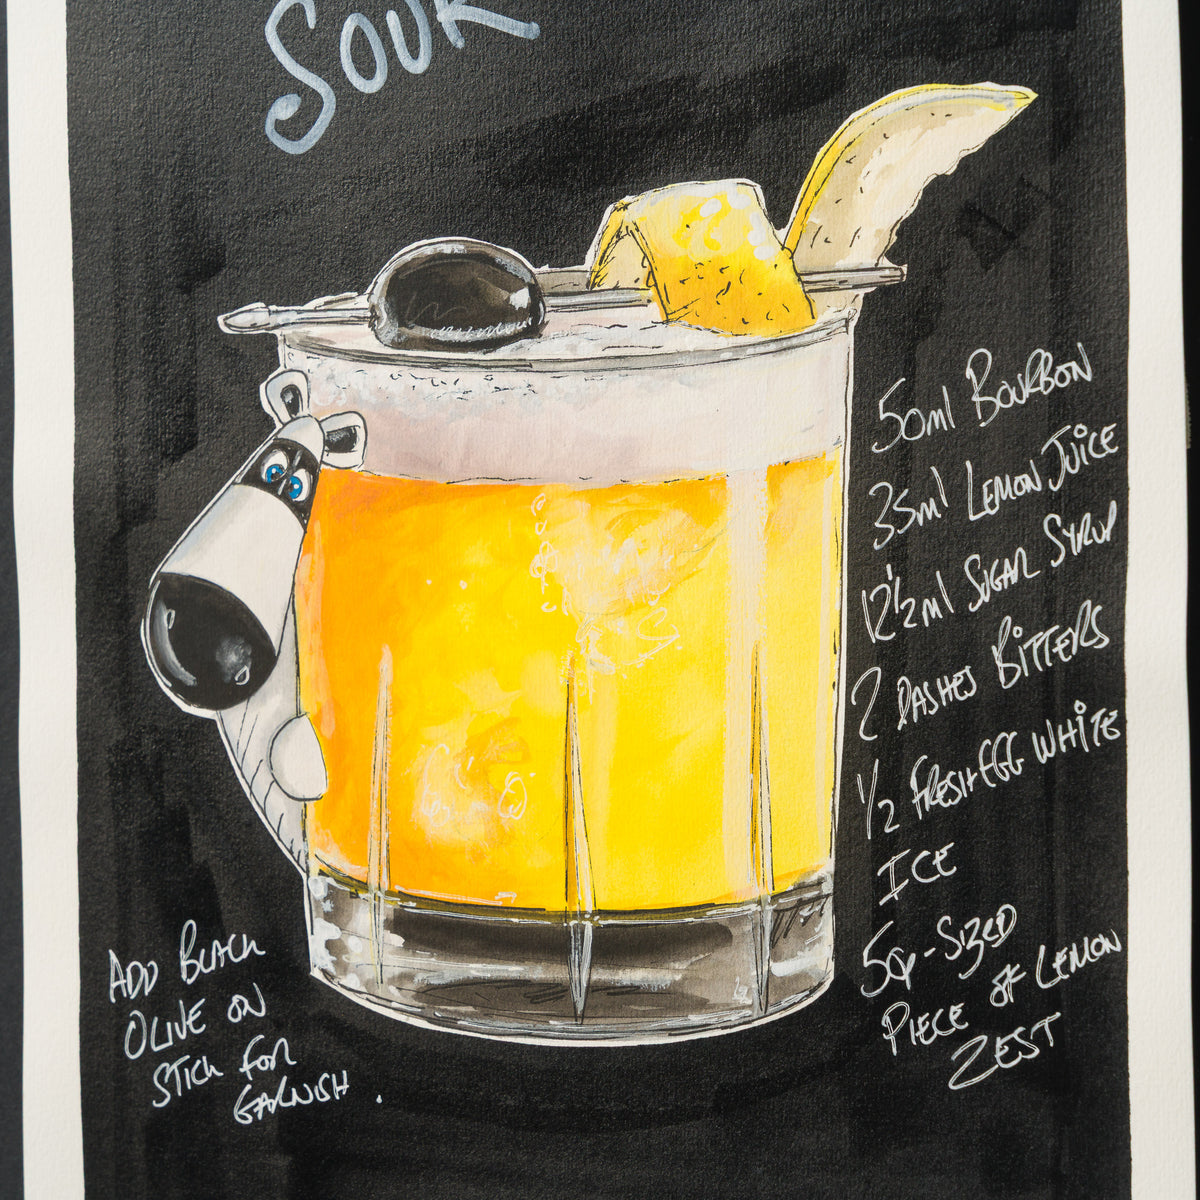 SOUR
50ml BOURBON
35ml LEMON JUICE
12 1/2ml SUGAR SYRUP
2 DASHES BITTERS
1/2 FRESH EGG WHITE
ICE
50p-SIZED
PIECE OF LEMON
ZEST
ADD BLACK
OLIVE ON
STICK FOR
GARNISH.